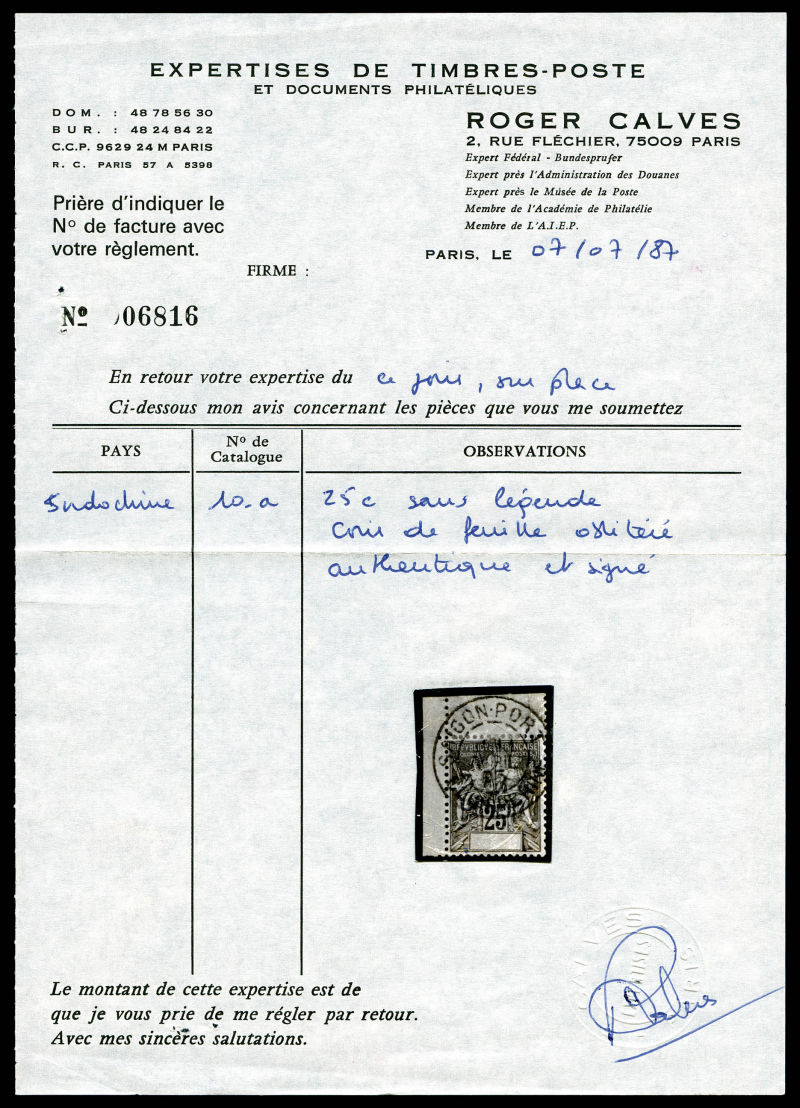 EXPERTISES DE TIMBRES-POSTE
ET DOCUMENTS PHILATÉLIQUES
DOM. : 48 78 56 30
BUR. : 48 24 84 22
C.C.P. 9629 24 M PARIS
R. C. PARIS 57 A 5398
ROGER CALVES
2, RUE FLÉCHIER, 75009 PARIS
Expert Fédéral - Bundesprufer
Expert près l'Administration des Douanes
Expert près le Musée de la Poste
Membre de l'Académie de Philatélie
Membre de L'A.I.E.P.
Prière d'indiquer le
No de facture avec
votre règlement.
PARIS, LE 07/07/87
FIRME :
No 06816
En retour votre expertise du ce jour, sur place
Ci-dessous mon avis concernant les pièces que vous me soumettez
PAYS
No de
Catalogue
OBSERVATIONS
Indochine 10.a 25c sans légende
Coin de feuille oblitéré
authentique et signé
SAIGON-PORT
RÉPUBLIQUE FRANÇAISE
25
Le montant de cette expertise est de
que je vous prie de me régler par retour.
Avec mes sincères salutations.
CALVES
Calves